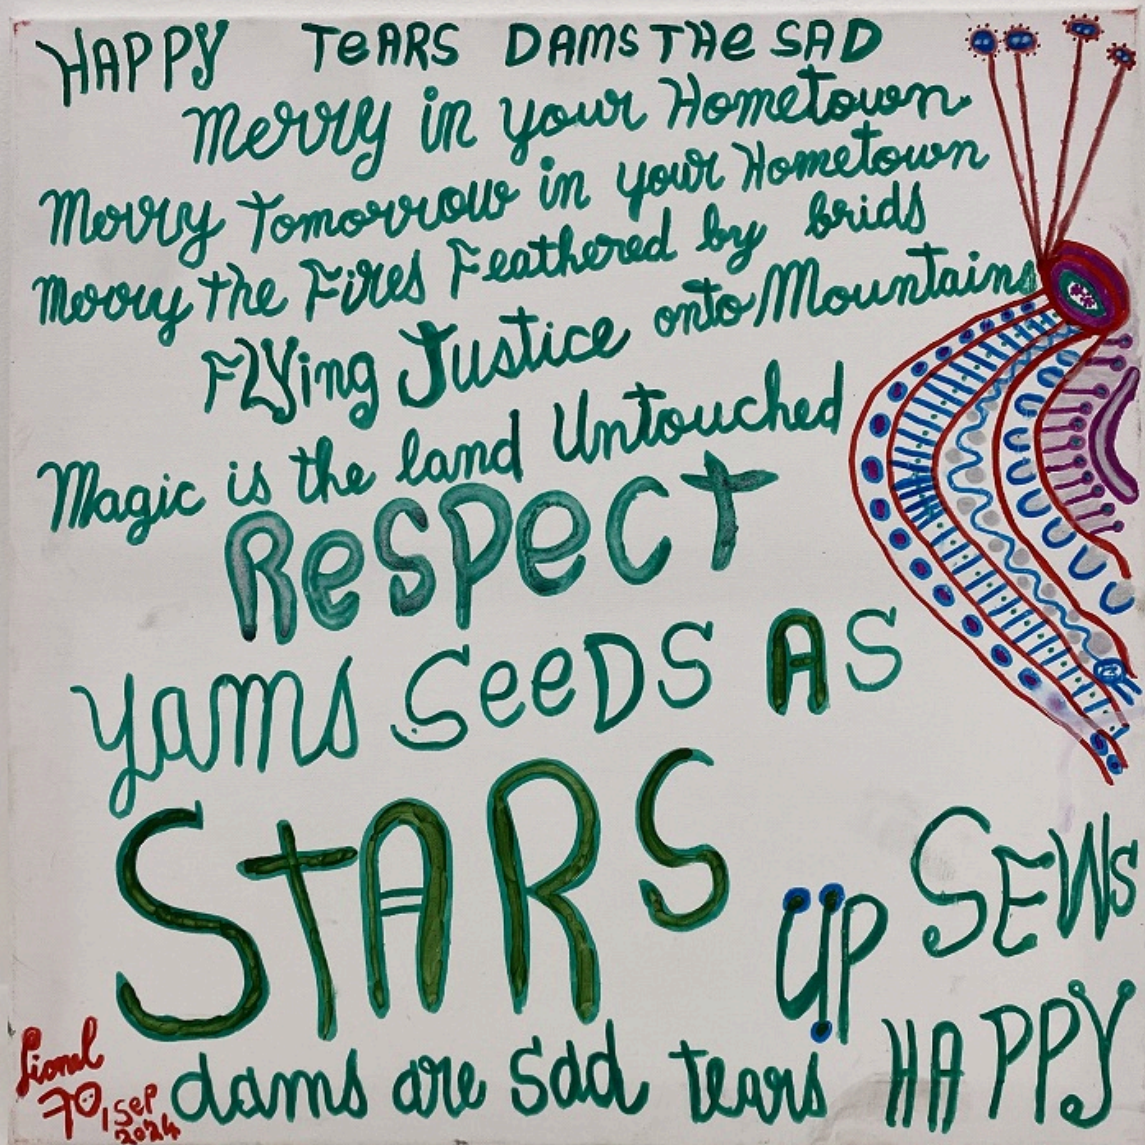 HAPPY TeARS DAMS THe SAD
Merry in your Hometown
Merry Tomorrow in your Hometown
Merry the Fires Feathered by brids
FLYing Justice onto Mountains
Magic is the land Untouched
ResPecT
yams SeeDS AS
STARS
UP SEWs
dams are sad tears HAPPY
Lionel
70, Sep
2024